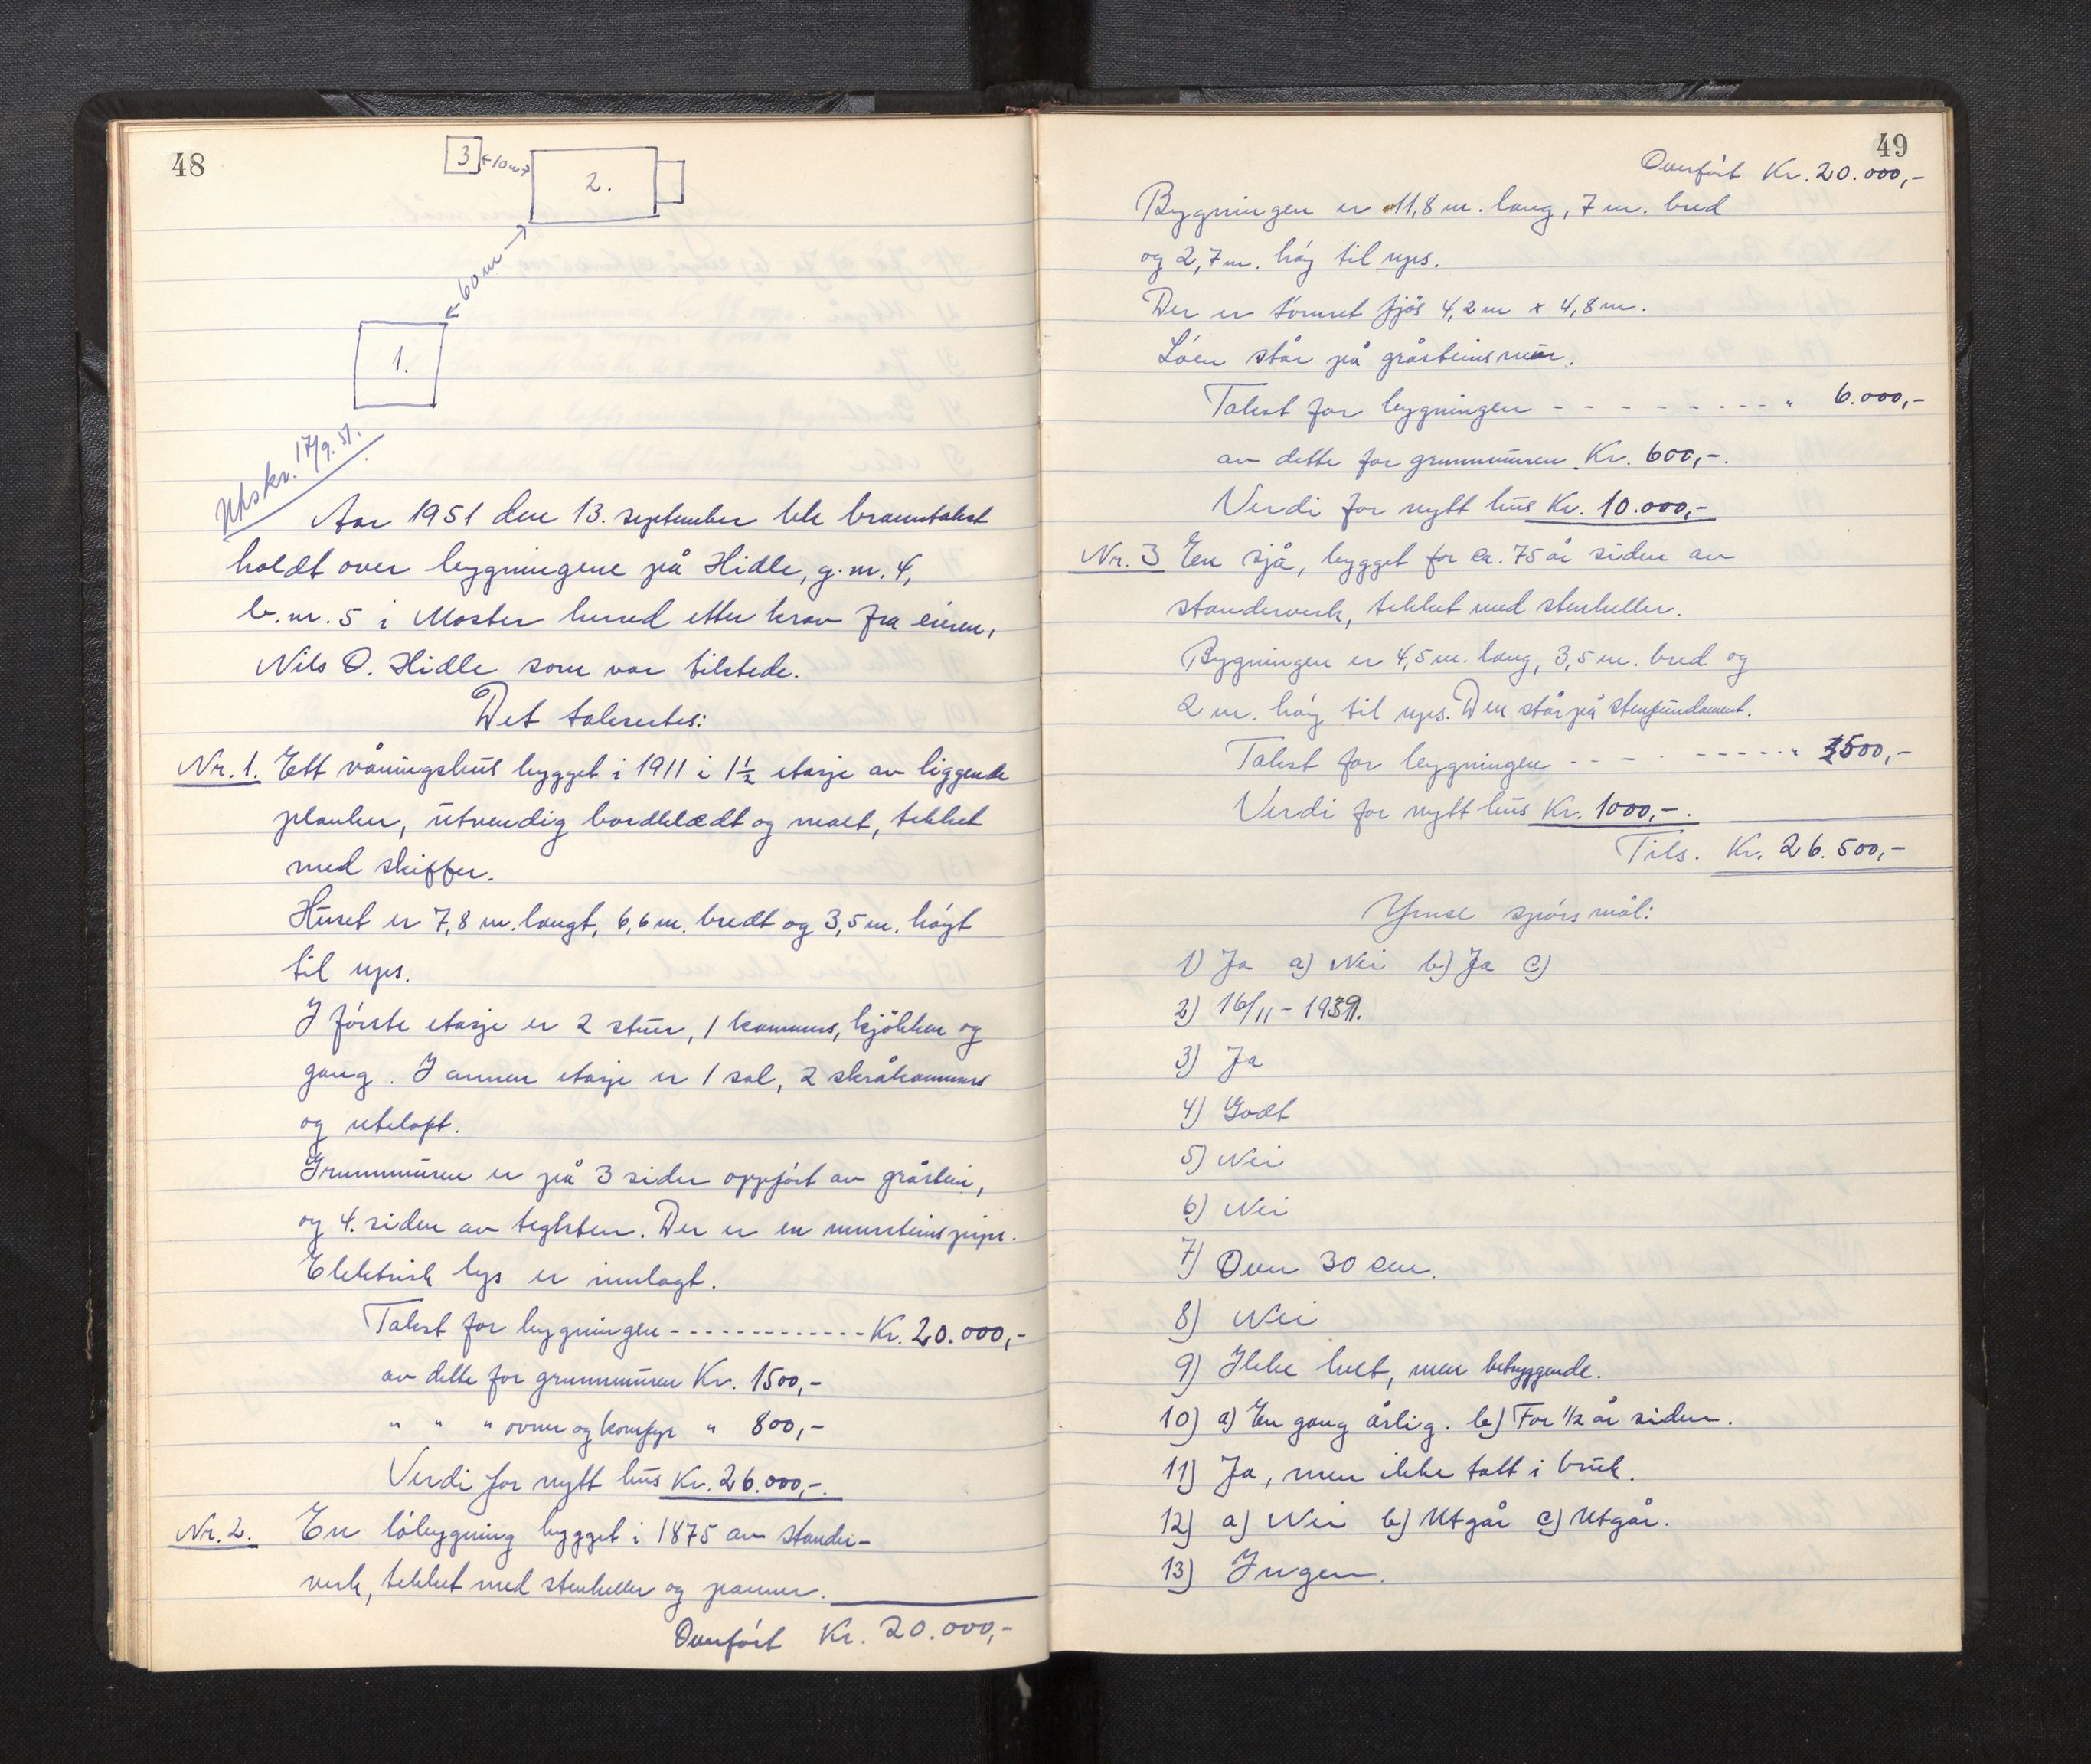 48
3 ←10m→ 2.
←60m→
1.
Utskr. 17/9.51.
Aar 1951 den 13. september ble branntakst
holdt over bygningene på Hidle, g.nr. 4,
b.nr. 5 i Moster herred etter krav fra eieren,
Nils O. Hidle som var tilstede.
Det taksertes:
Nr. 1. Ett våningshus bygget i 1911 i 1½ etasje av liggende
planker, utvendig bordklædt og malt, tekket
med skiffer.
Huset er 7,8 m. langt, 6,6 m. bredt og 3,5 m. høgt
til ups.
I første etasje er 2 stuer, 1 kammers, kjøkken og
gang. I annen etasje er 1 sal, 2 skråkammers
og uteloft.
Grunnmuren er på 3 sider oppført av gråstein,
og 4. siden av teglsten. Der er en mursteinspipe.
Elektrisk lys er innlagt.
Takst for bygningen ------------- Kr. 20.000,-
av dette for grunnmuren Kr. 1500,-
" " " ovner og komfyr " 800,-
Verdi for nytt hus Kr. 26.000,-.
Nr. 2. En løbygning bygget i 1875 av stender-
verk, tekket med stenheller og panner.
Overført Kr. 20.000,-
49
Overført Kr. 20.000,-
Bygningen er 11,8 m. lang, 7 m. bred
og 2,7 m. høg til ups.
Der er tømret fjøs 4,2 m x 4,8 m.
Løen står på gråsteinsmur.
Takst for bygningen - - - - - - - - - " 6.000,-
av dette for grunnmuren Kr. 600,-.
Verdi for nytt hus Kr. 10.000,-
Nr. 3 En sjå, bygget for ca. 75 år siden av
standerverk, tekket med stenheller.
Bygningen er 4,5 m. lang, 3,5 m. bred og
2 m. høg til ups. Den står på stenfundament.
Takst for bygningen - - - - - - - - " 500,-
Verdi for nytt hus Kr. 1000,-.
Tils. Kr. 26.500,-
Ymse spørsmål:
1) Ja a) Nei b) Ja c)
2) 16/11-1939.
3) Ja
4) Godt
5) Nei
6) Nei
7) Over 30 cm.
8) Nei
9) Ikke luet, men betryggende.
10) a) En gang årlig. b) For 1/2 år siden.
11) Ja, men ikke tatt i bruk.
12) a) Nei b) Utgår c) Utgår.
13) Ingen.